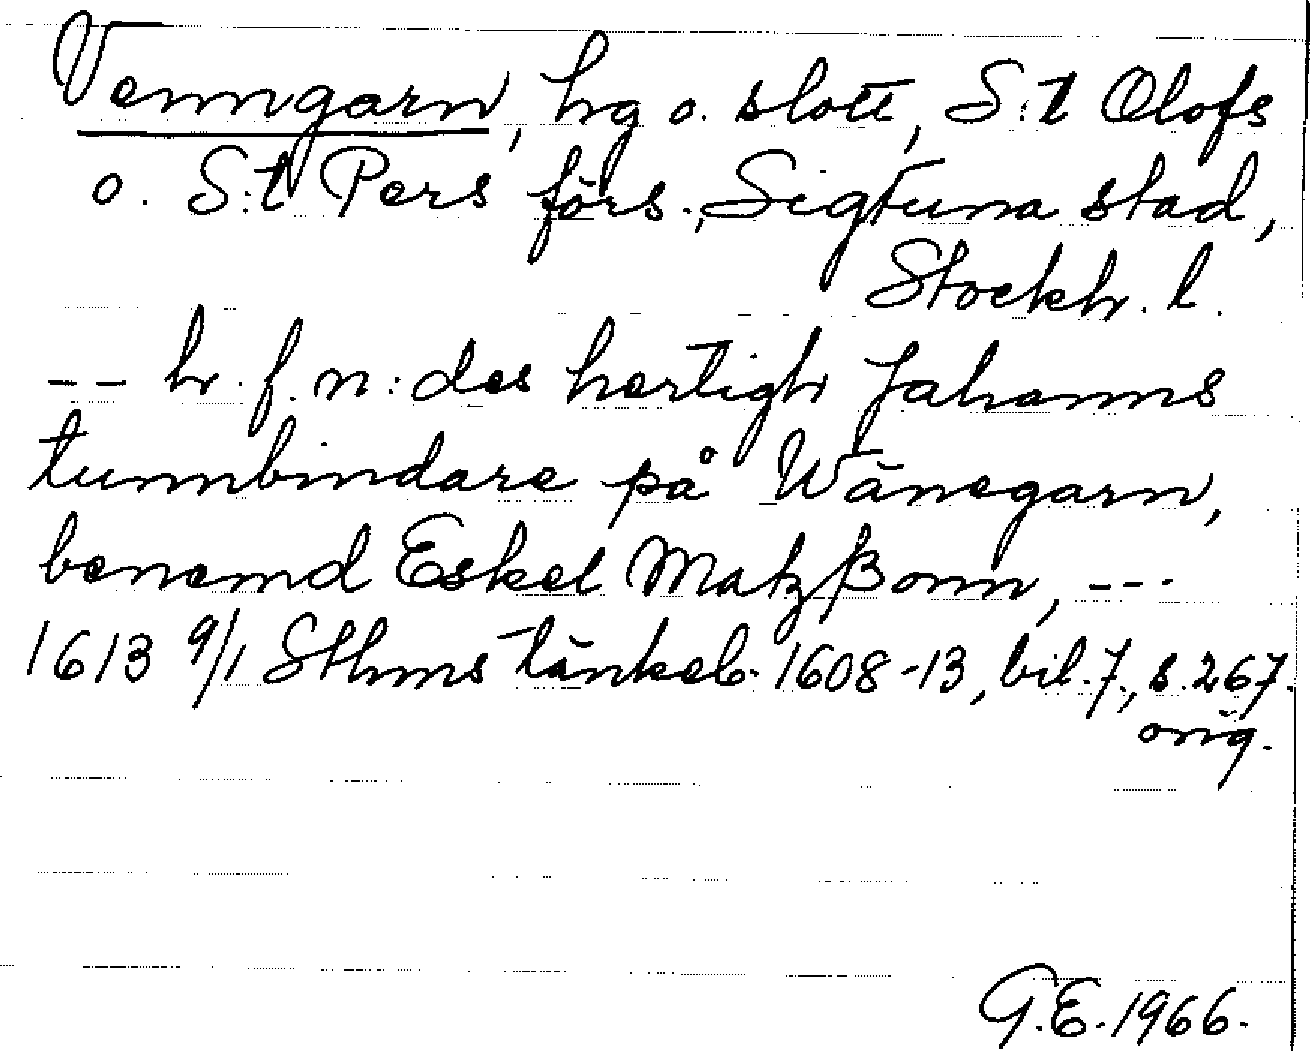 Venngarn, hg o. slott, S:t Olofs
o. S:t Pers förs., Sigtuna stad,
Stockh. l.
-- h. f. n: des hertigh Johanns
tunnbindare på Wänegarn,
benemd Eskel Matzßonn, ---
1613 9/1 Sthms tänkeb. 1608-13, bil. 7, s. 267.
orig.
G.E. 1966.